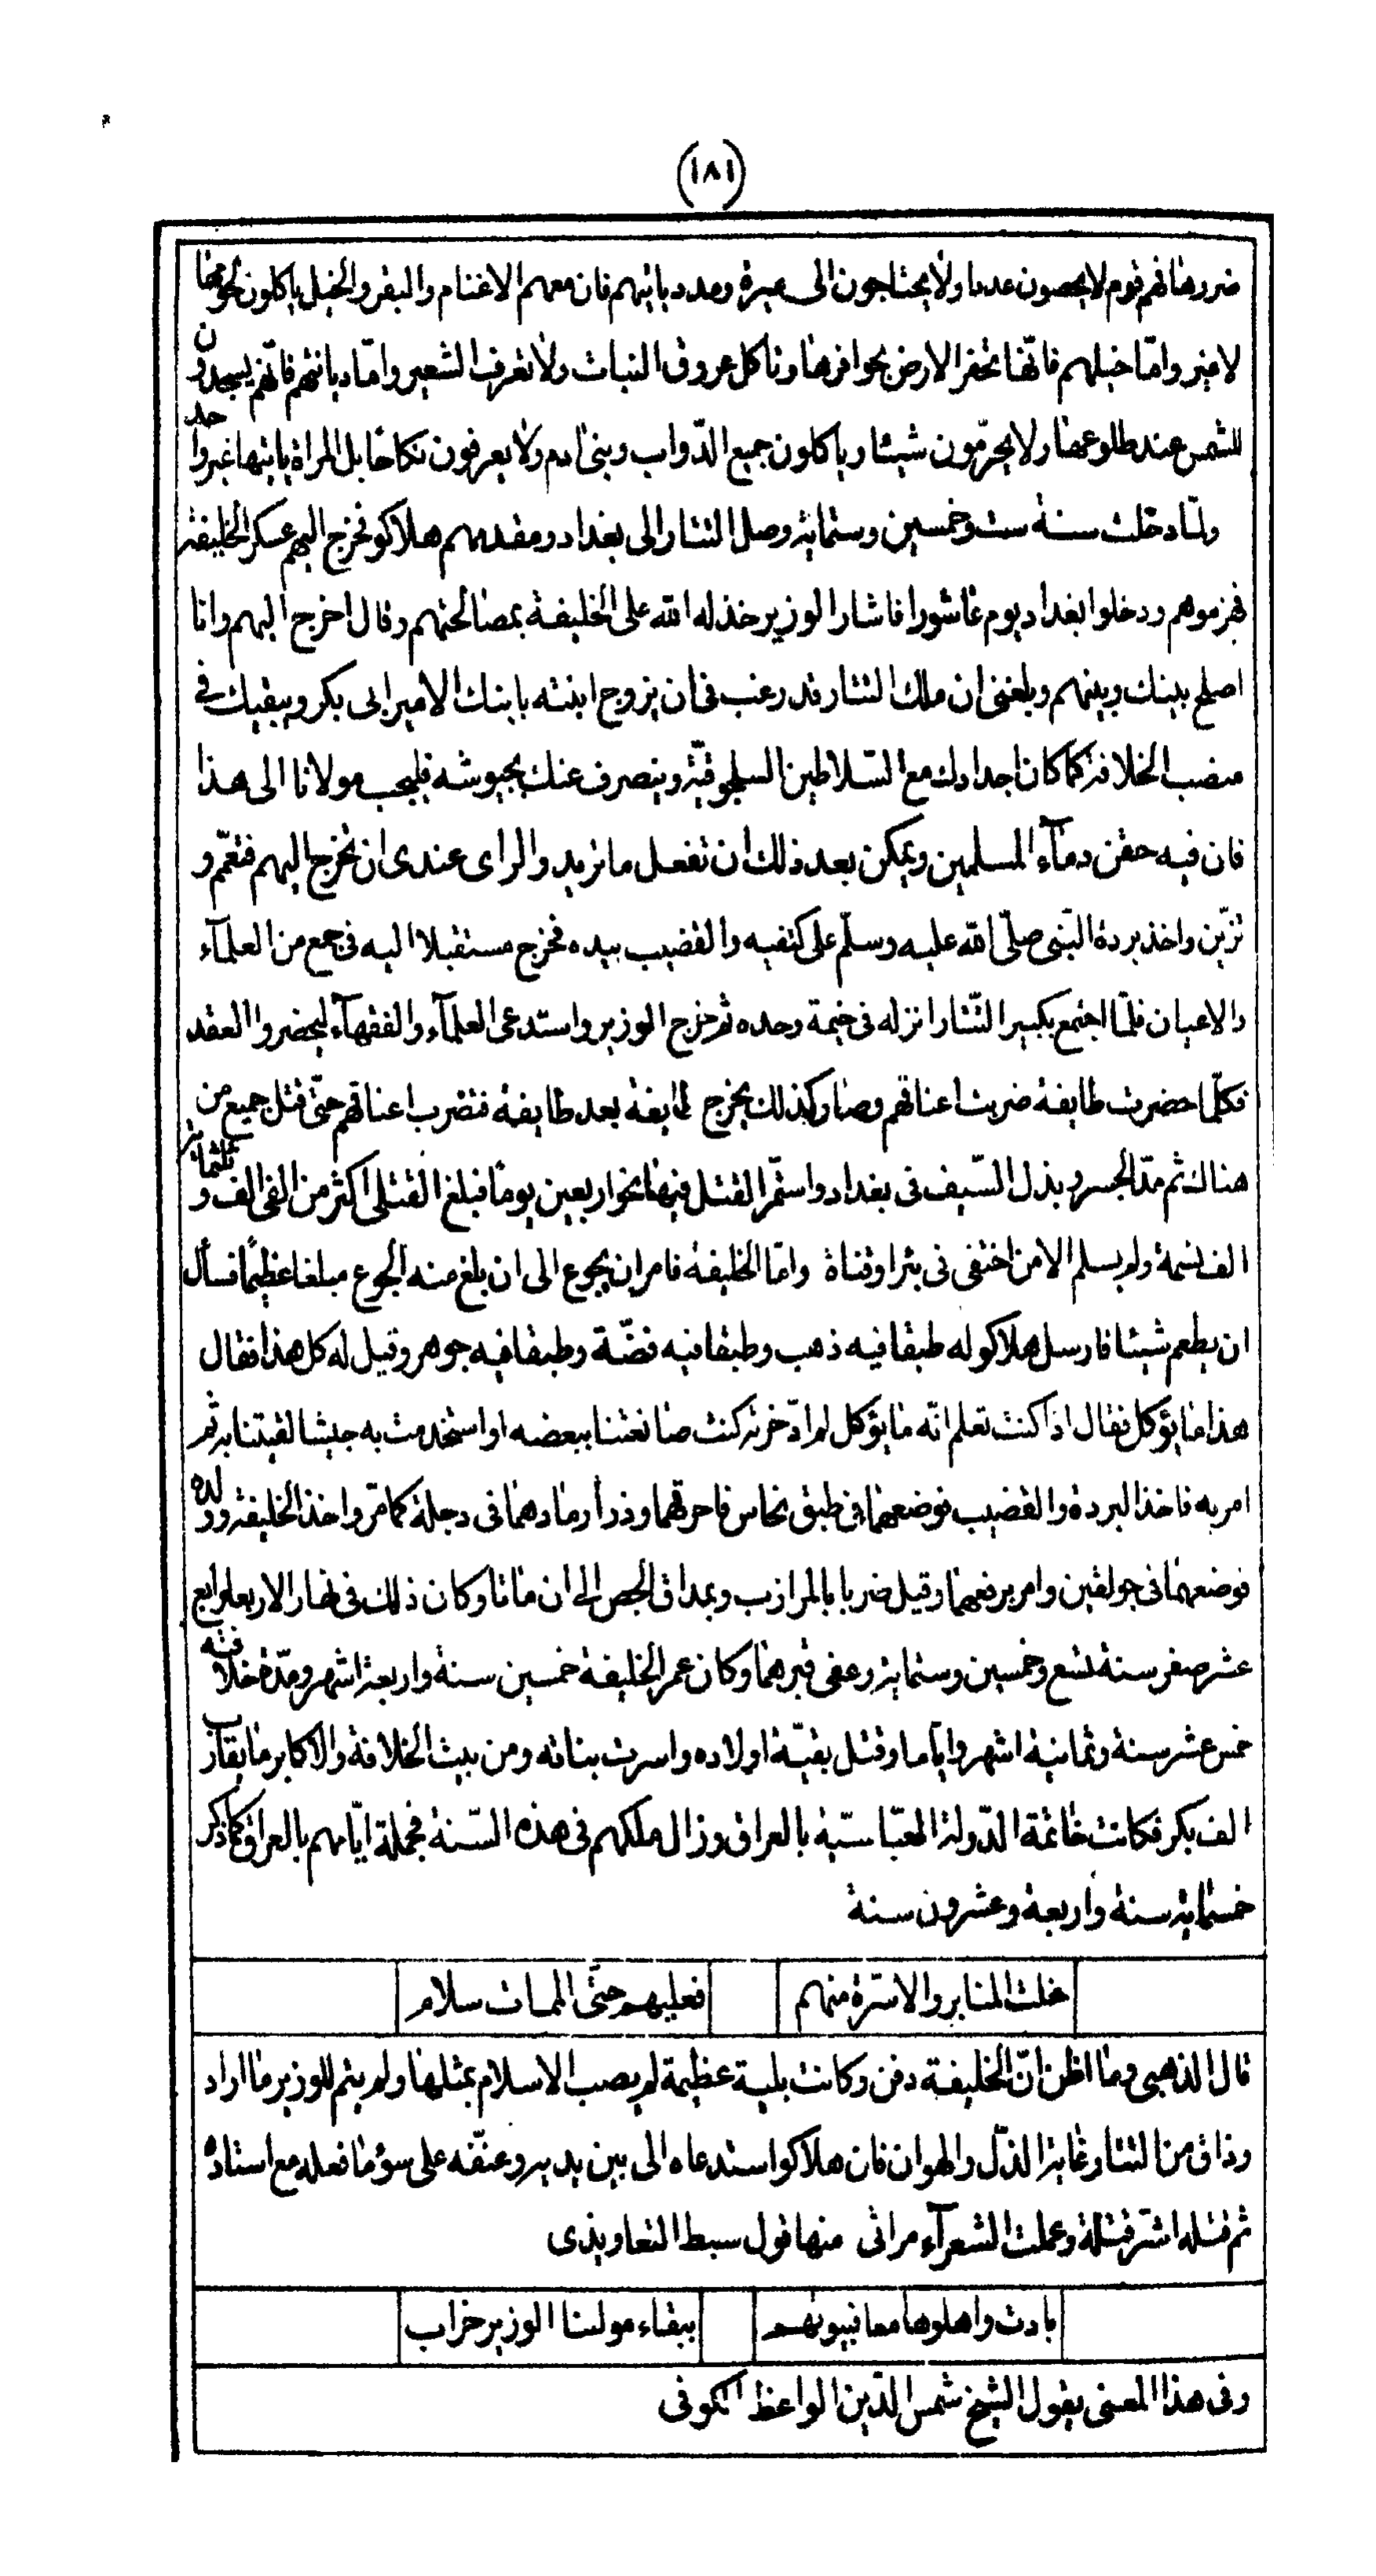 (١٨١)
ضررها فهم قوم لا يحصون عددا ولا يحتاجون الى ميرة ومدد ياتيهم فان معهم الاغنام والبقر والخيل ياكلون لحومها
لا غير واما خيلهم فانّها تحفر الارض بحوافرها وتاكل عروق النبات ولا تعرف الشعير وامّا ديانتهم فانّهم يسجدون
للشمس عند طلوعها ولا يحرّمون شيئا وياكلون جميع الدّواب وبنى ادم ولا يعرفون نكاحا بل المراة ياتيها غير واحد
ولمّا دخلت سنة ست وخمسين وستماية وصل التتار الى بغداد ومقدمهم هلاكو فخرج اليهم عسكر الخليفة
فهزموهم ودخلوا بغداد يوم عاشورا فاشار الوزير خذله الله على الخليفة بمصالحتهم وقال اخرج اليهم وانا
اصلح بينك وبينهم وبلغنى ان ملك التتار قد رغب فى ان يزوج ابنته بابنك الامير ابى بكر ويبقيك فى
منصب الخلافة كما كان اجدادك مع السّلاطين السلجوقيّة وينصرف عنك بجيوشه فليجب مولانا الى هذا
فان فيه حقن دمآء المسلمين ويمكن بعد ذلك ان تفعل ما تريد والراى عندى ان تخرج اليهم فتعمّم و
تزيّن واخذ بردة النّبى صلّى الله عليه وسلّم على كتفيه والقضيب بيده فخرج مستقبلا اليه فى جمع من العلمآء
والاعيان فلمّا اجتمع بكبير التّتار انزله فى خيمة وحده ثم خرج الوزير واستدعى العلمآء والفقهآء ليحضروا العقد
فكلّما حضرت طايفة ضربت اعناقهم وصار كذلك يخرج طايفة بعد طايفة فتضرب اعناقهم حتّى قتل جميع من
هناك ثم مدّ الجسر وبذل السّيف فى بغداد واستمّر القتل فيها نحو اربعين يوما فبلغ القتلى اكثر من الفى الف وثلثماية
الف نسمة ولم يسلم الا من اختفى فى بئر او قناة وامّا الخليفة فامر ان يجوع الى ان بلغ منه الجوع مبلغا عظيمًا فسأل
ان يطعم شيئا فارسل هلاكو له طبقا فيه ذهب وطبقا فيه فضّة وطبقا فيه جوهر وقيل له كل هذا فقال
هذا ما يؤكل فقال اذا كنت تعلم انّه ما يؤكل لم ادّخرته كنت صانعتنا ببعضه او استخدمت به جيشا لقيتنا به ثم
امر به فاخذ البردة والقضيب فوضعهما فى طبق نحاس فاحرقهما وذرأ رمادهما فى دجلة كما مرّ واخذ الخليفة وولده
فوضعهما فى جولقين وامر برفعهما وقيل ضربا بالمرازب وبمداق الجص الى ان ماتا وكان ذلك فى نهار الاربعا رابع
عشر صفر سنة تسع وخمسين وستماية وعفى قبرهما وكان عمر الخليفة خمسين سنة واربعة اشهر ومدّة خلافته
خمس عشر سنة وثمانية اشهر وايّاما وقتل بقيّة اولاده واسرت بناته ومن بيت الخلافة والاكابر ما يقارب
الف بكر فكانت خاتمة الدّولة العبّاسيّة بالعراق وزال ملكهم فى هذه السّنة فجملة ايّامهم بالعراق كما ذكر
خمسماية سنة واربعة وعشرون سنة
خلت المنابر والاسّرة منهم فعليهم حتّى الممات سلام
قال الذهبى وما اظن انّ الخليفة دفن وكانت بلية عظيمة لم يصب الاسلام بمثلها ولم يتم للوزير ما اراد
وذاق من التتار غاية الذلّ والهوان فان هلاكو استدعاه الى بين يديه وعنّفه على سوء ما فعله مع استاذه
ثم قتله اشر قتلة وعملت الشعرآء مراثى منها قول سبط التعاويذى
بادت واهلوها معا فبيوتهم ببقاء مولنا الوزير خراب
وفى هذا المعنى يقول الشيخ شمس الدّين الواعظ الكوفى